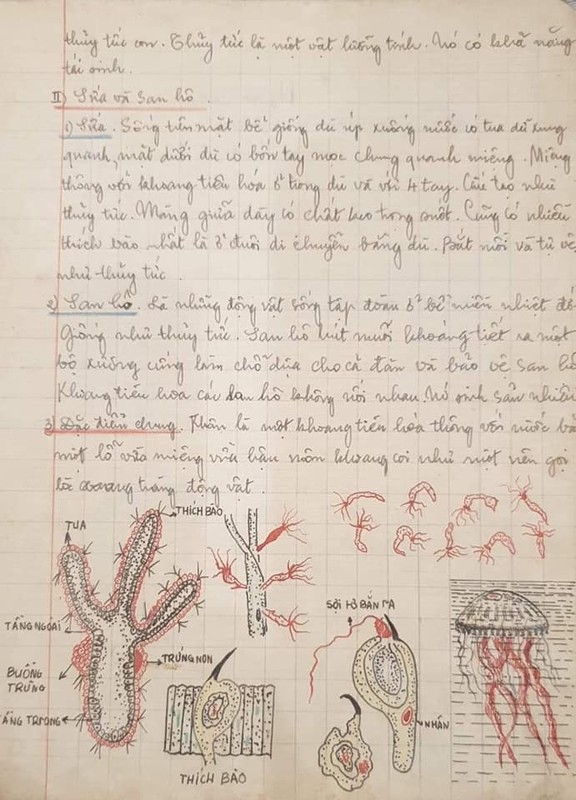 thủy tức con. Thủy tức là một vật lưỡng tính. Nó có khả năng
tái sinh.
II) Sứa và San hô
1) Sứa. Sống trên mặt bể giống dù úp xuống nước có tua dù xung
quanh, mặt dưới dù có bốn tay mọc chung quanh miệng. Miệng
thông với khoang tiêu hóa ở trong dù và với 4 tay. Cấu tạo như
thủy tức. Màng giữa dày có chất keo trong suốt. Cũng có nhiều
thích bào nhất là ở đuôi di chuyển bằng dù. Bắt mồi và tự vệ
như thủy tức.
2) San hô. Là những động vật sống tập đoàn ở bể miền nhiệt đới
Giống như thủy tức. San hô hút muối khoáng tiết ra một
bộ xương cứng làm chỗ dựa cho cả đàn và bảo vệ san hô
Khoang tiêu hóa các san hô không nối nhau. Nó sinh sản nhiều
3) Đặc điểm chung. Thân là một khoang tiêu hóa thông với nước
một lỗ vừa miệng vừa hậu môn khoang coi như một nên gọi
là xoang tràng động vật.
THÍCH BÀO
TUA
SỢI HỞ BẮN RA
TẦNG NGOÀI
TRỨNG NON
BUỒNG
TRỨNG
NHÂN
TẦNG TRONG
THÍCH BÀO